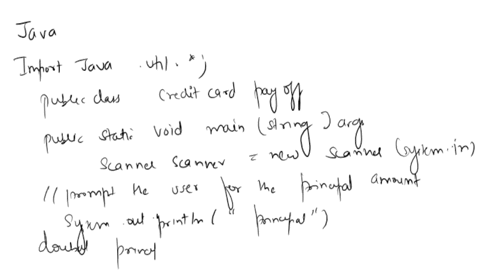 Java
Import Java .util.*;
public class credit card pay off
public static void main (string ) args
Scanner scanner = new Scanner (system.in)
// prompt the user for the principal amount
System .out println ( " principal " )
double princi